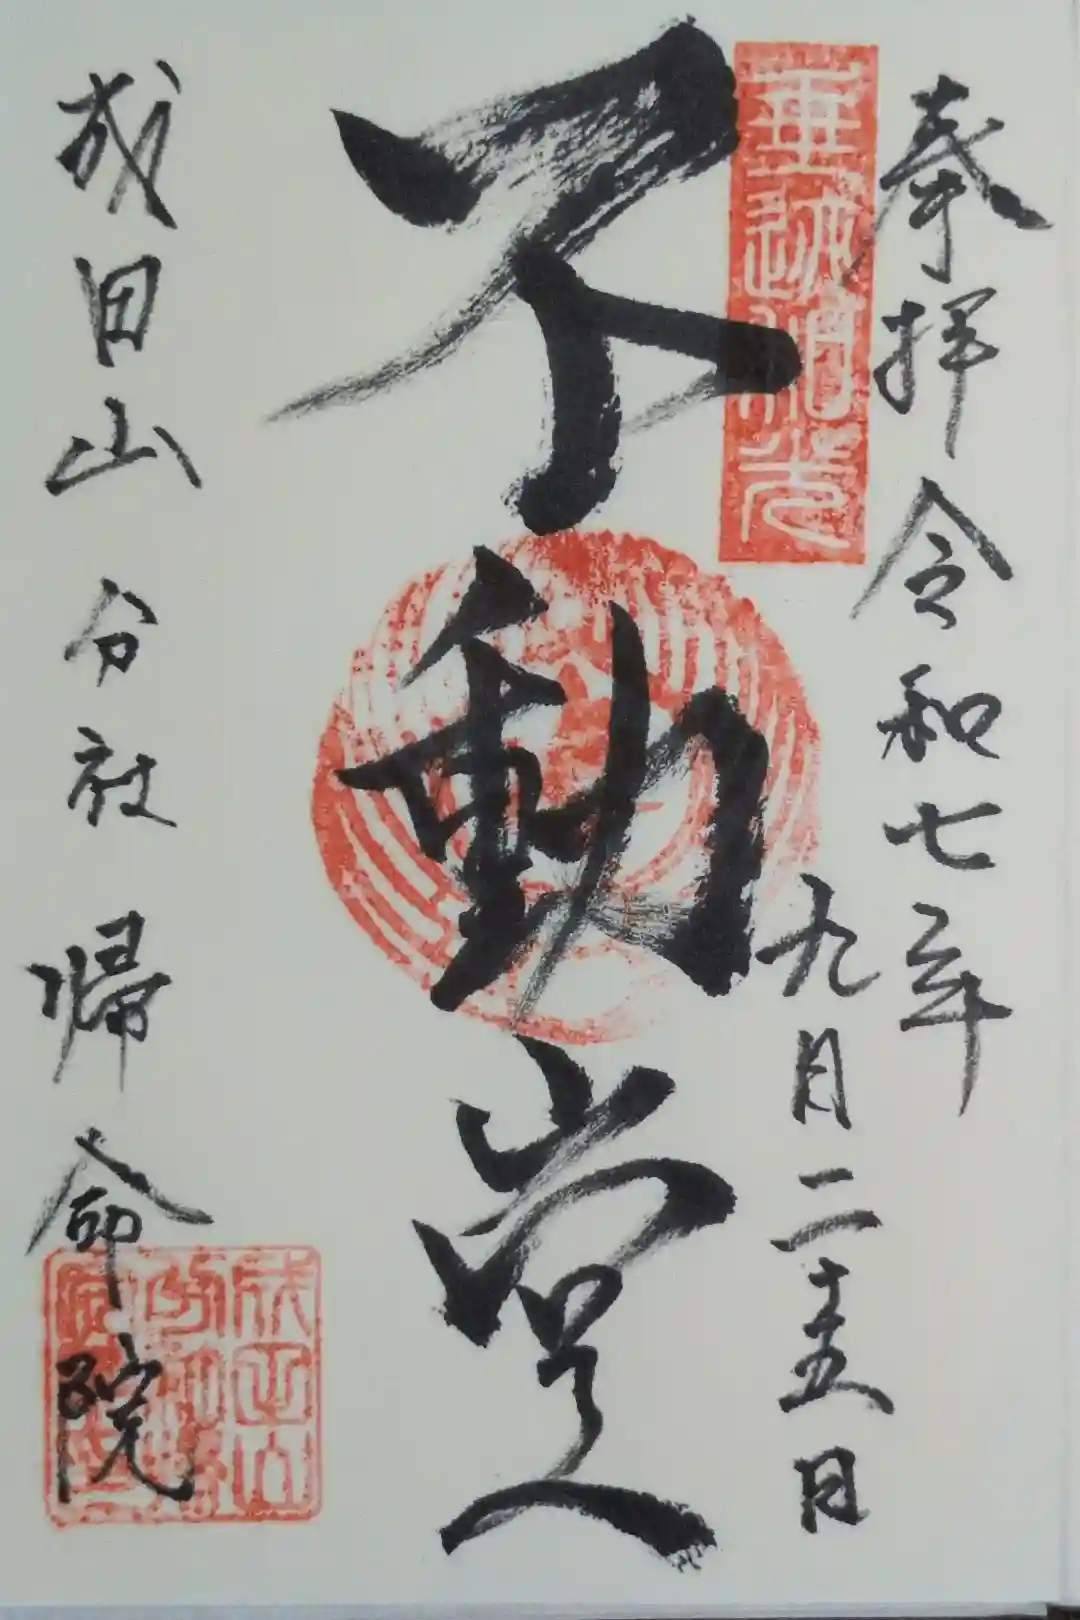 奉拝 令和七年
九月二十五日
不動堂
成田山 分社 帰命院